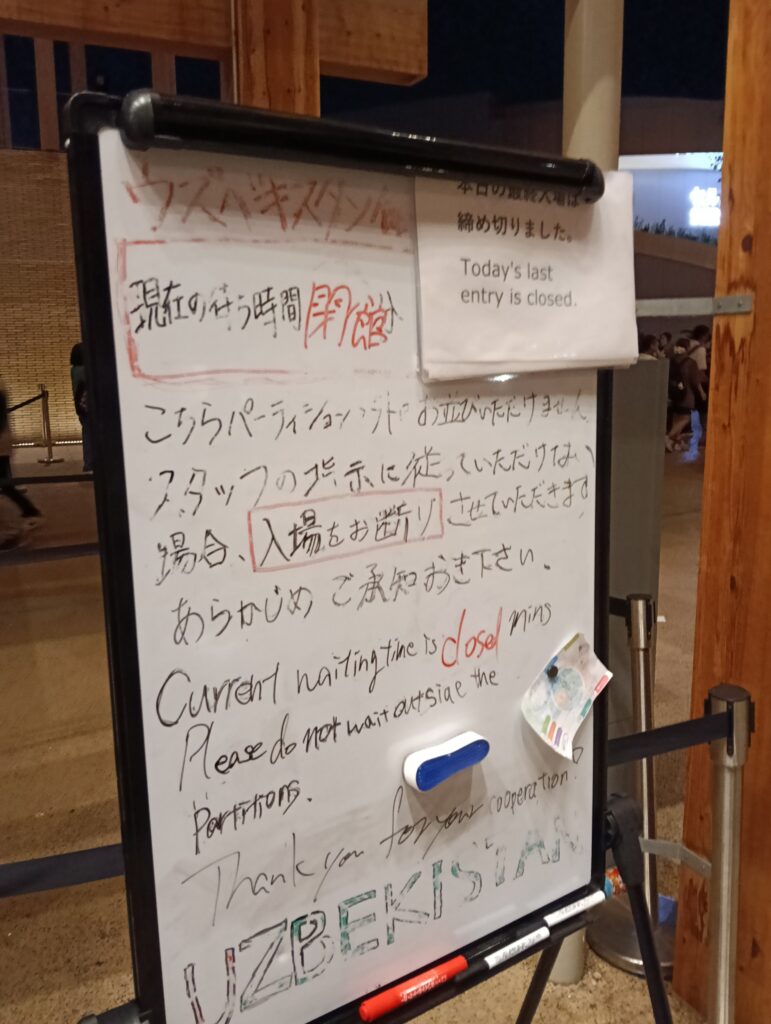 ウズベキスタン館
現在の待う時間 閉館分
本日の最終入場は
締め切りました。
Today's last
entry is closed.
こちらパーティション外にお並びいただけません
スタッフの指示に従っていただけない
場合、入場をお断りさせていただきます
あらかじめご承知おき下さい。
Current waiting time is closed mins
Please do not wait outside the
partitions.
Thank you for your cooperation!
UZBEKISTAN